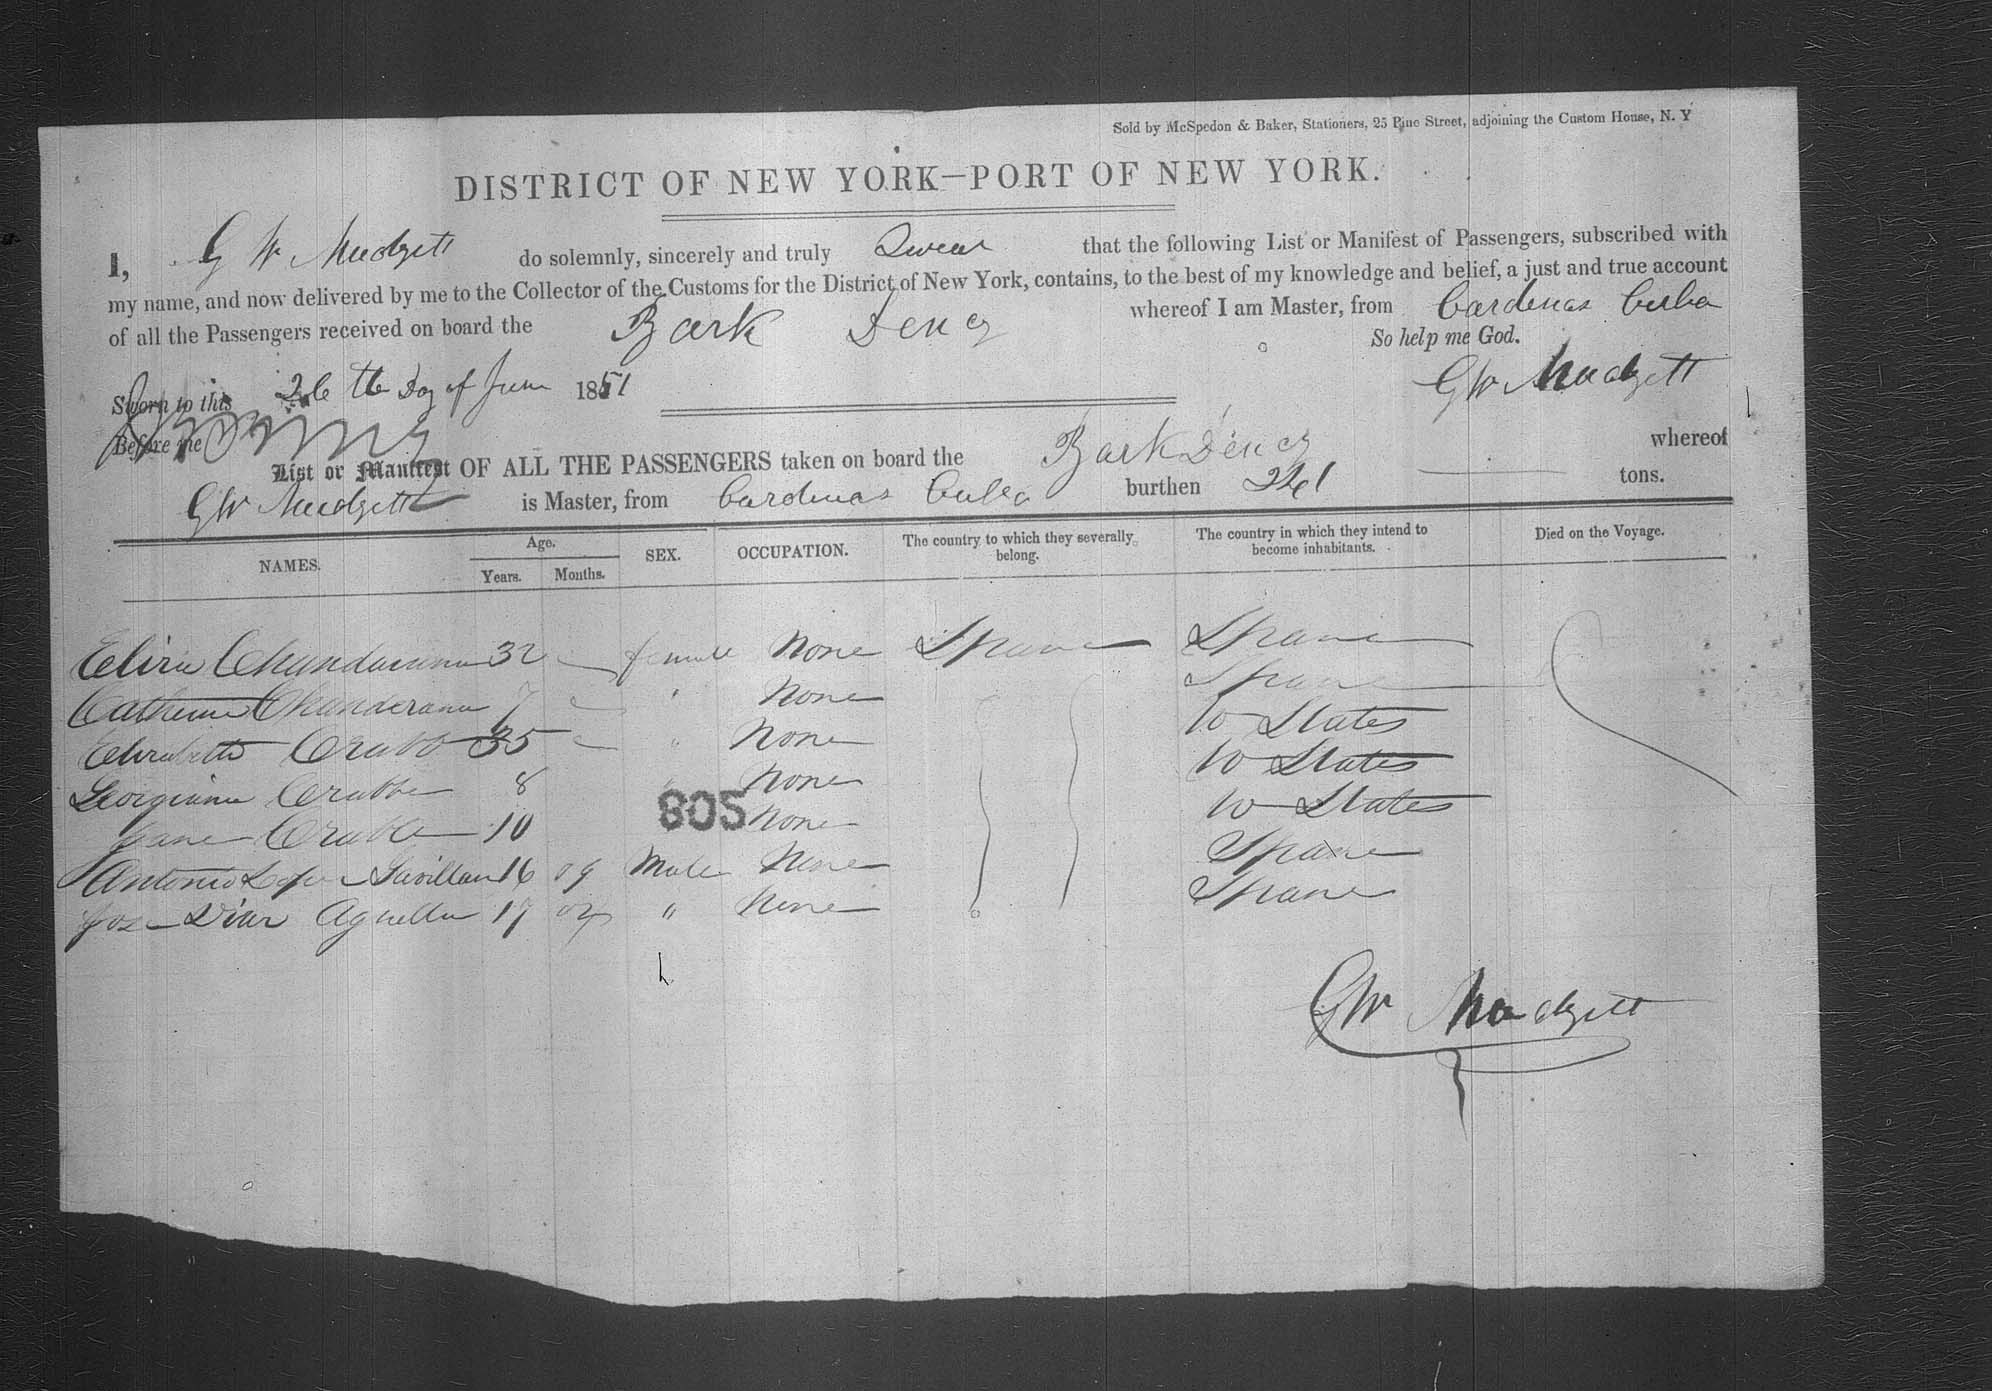 Sold by McSpedon & Baker, Stationers, 25 Pine Street, adjoining the Custom House, N. Y
DISTRICT OF NEW YORK—PORT OF NEW YORK.
I, G W Mudgett do solemnly, sincerely and truly Swear that the following List or Manifest of Passengers, subscribed with
my name, and now delivered by me to the Collector of the Customs for the District of New York, contains, to the best of my knowledge and belief, a just and true account
of all the Passengers received on board the Bark whereof I am Master, from Cardenas Cuba
So help me God.
Sworn to this 26 th Day of June 1851
GW Mudgett
Before me
List or Manifest OF ALL THE PASSENGERS taken on board the Bark whereof
GW Mudgett is Master, from Cardenas Cuba burthen tons.
NAMES. Age. Years. Months. SEX. OCCUPATION. The country to which they severally belong. The country in which they intend to become inhabitants. Died on the Voyage.
32 female None Spane Spane
7 " None Spane
Elizabeth Crabb 35 " None U States
Georgiana Crabbe 8 " None U States
Jane Crabbe 10 None U States
805
Antonio 16 09 Male None Spane
Jose 17 " None Spane
GW Mudgett